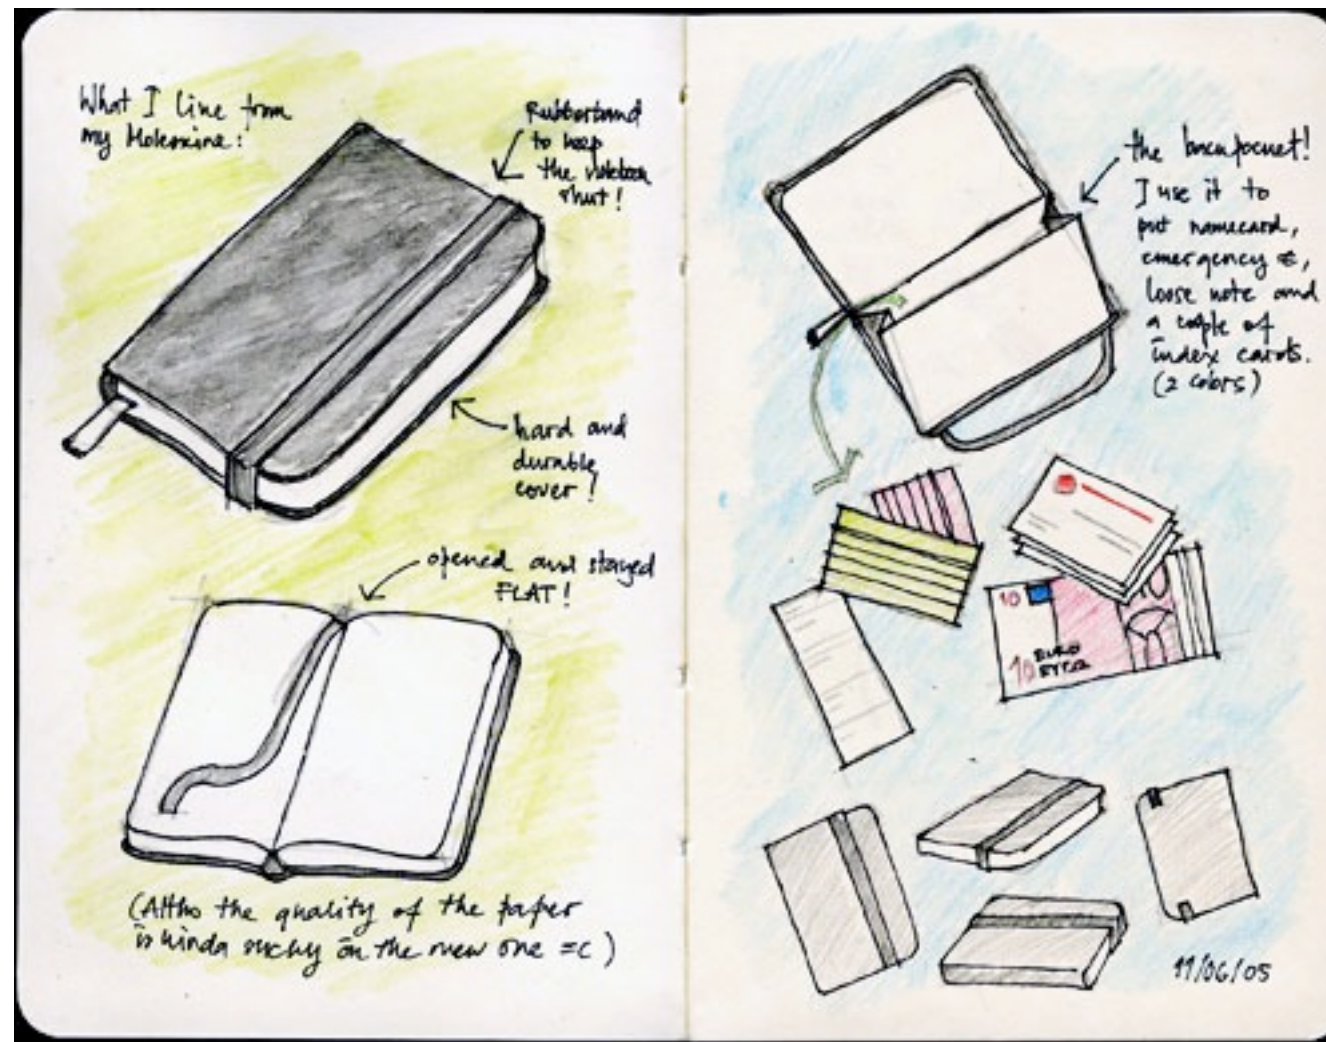 What I like from
my Moleskine:
Rubberband
to keep
the notebook
shut!
hard and
durable
cover!
opened and stayed
FLAT!
(Altho the quality of the paper
is kinda sucky on the new one =c)
the back pocket!
I use it to
put namecard,
emergency €,
loose note and
a couple of
index cards.
(2 colors)
10
10 EURO
ΕΥΡΩ
11/06/05